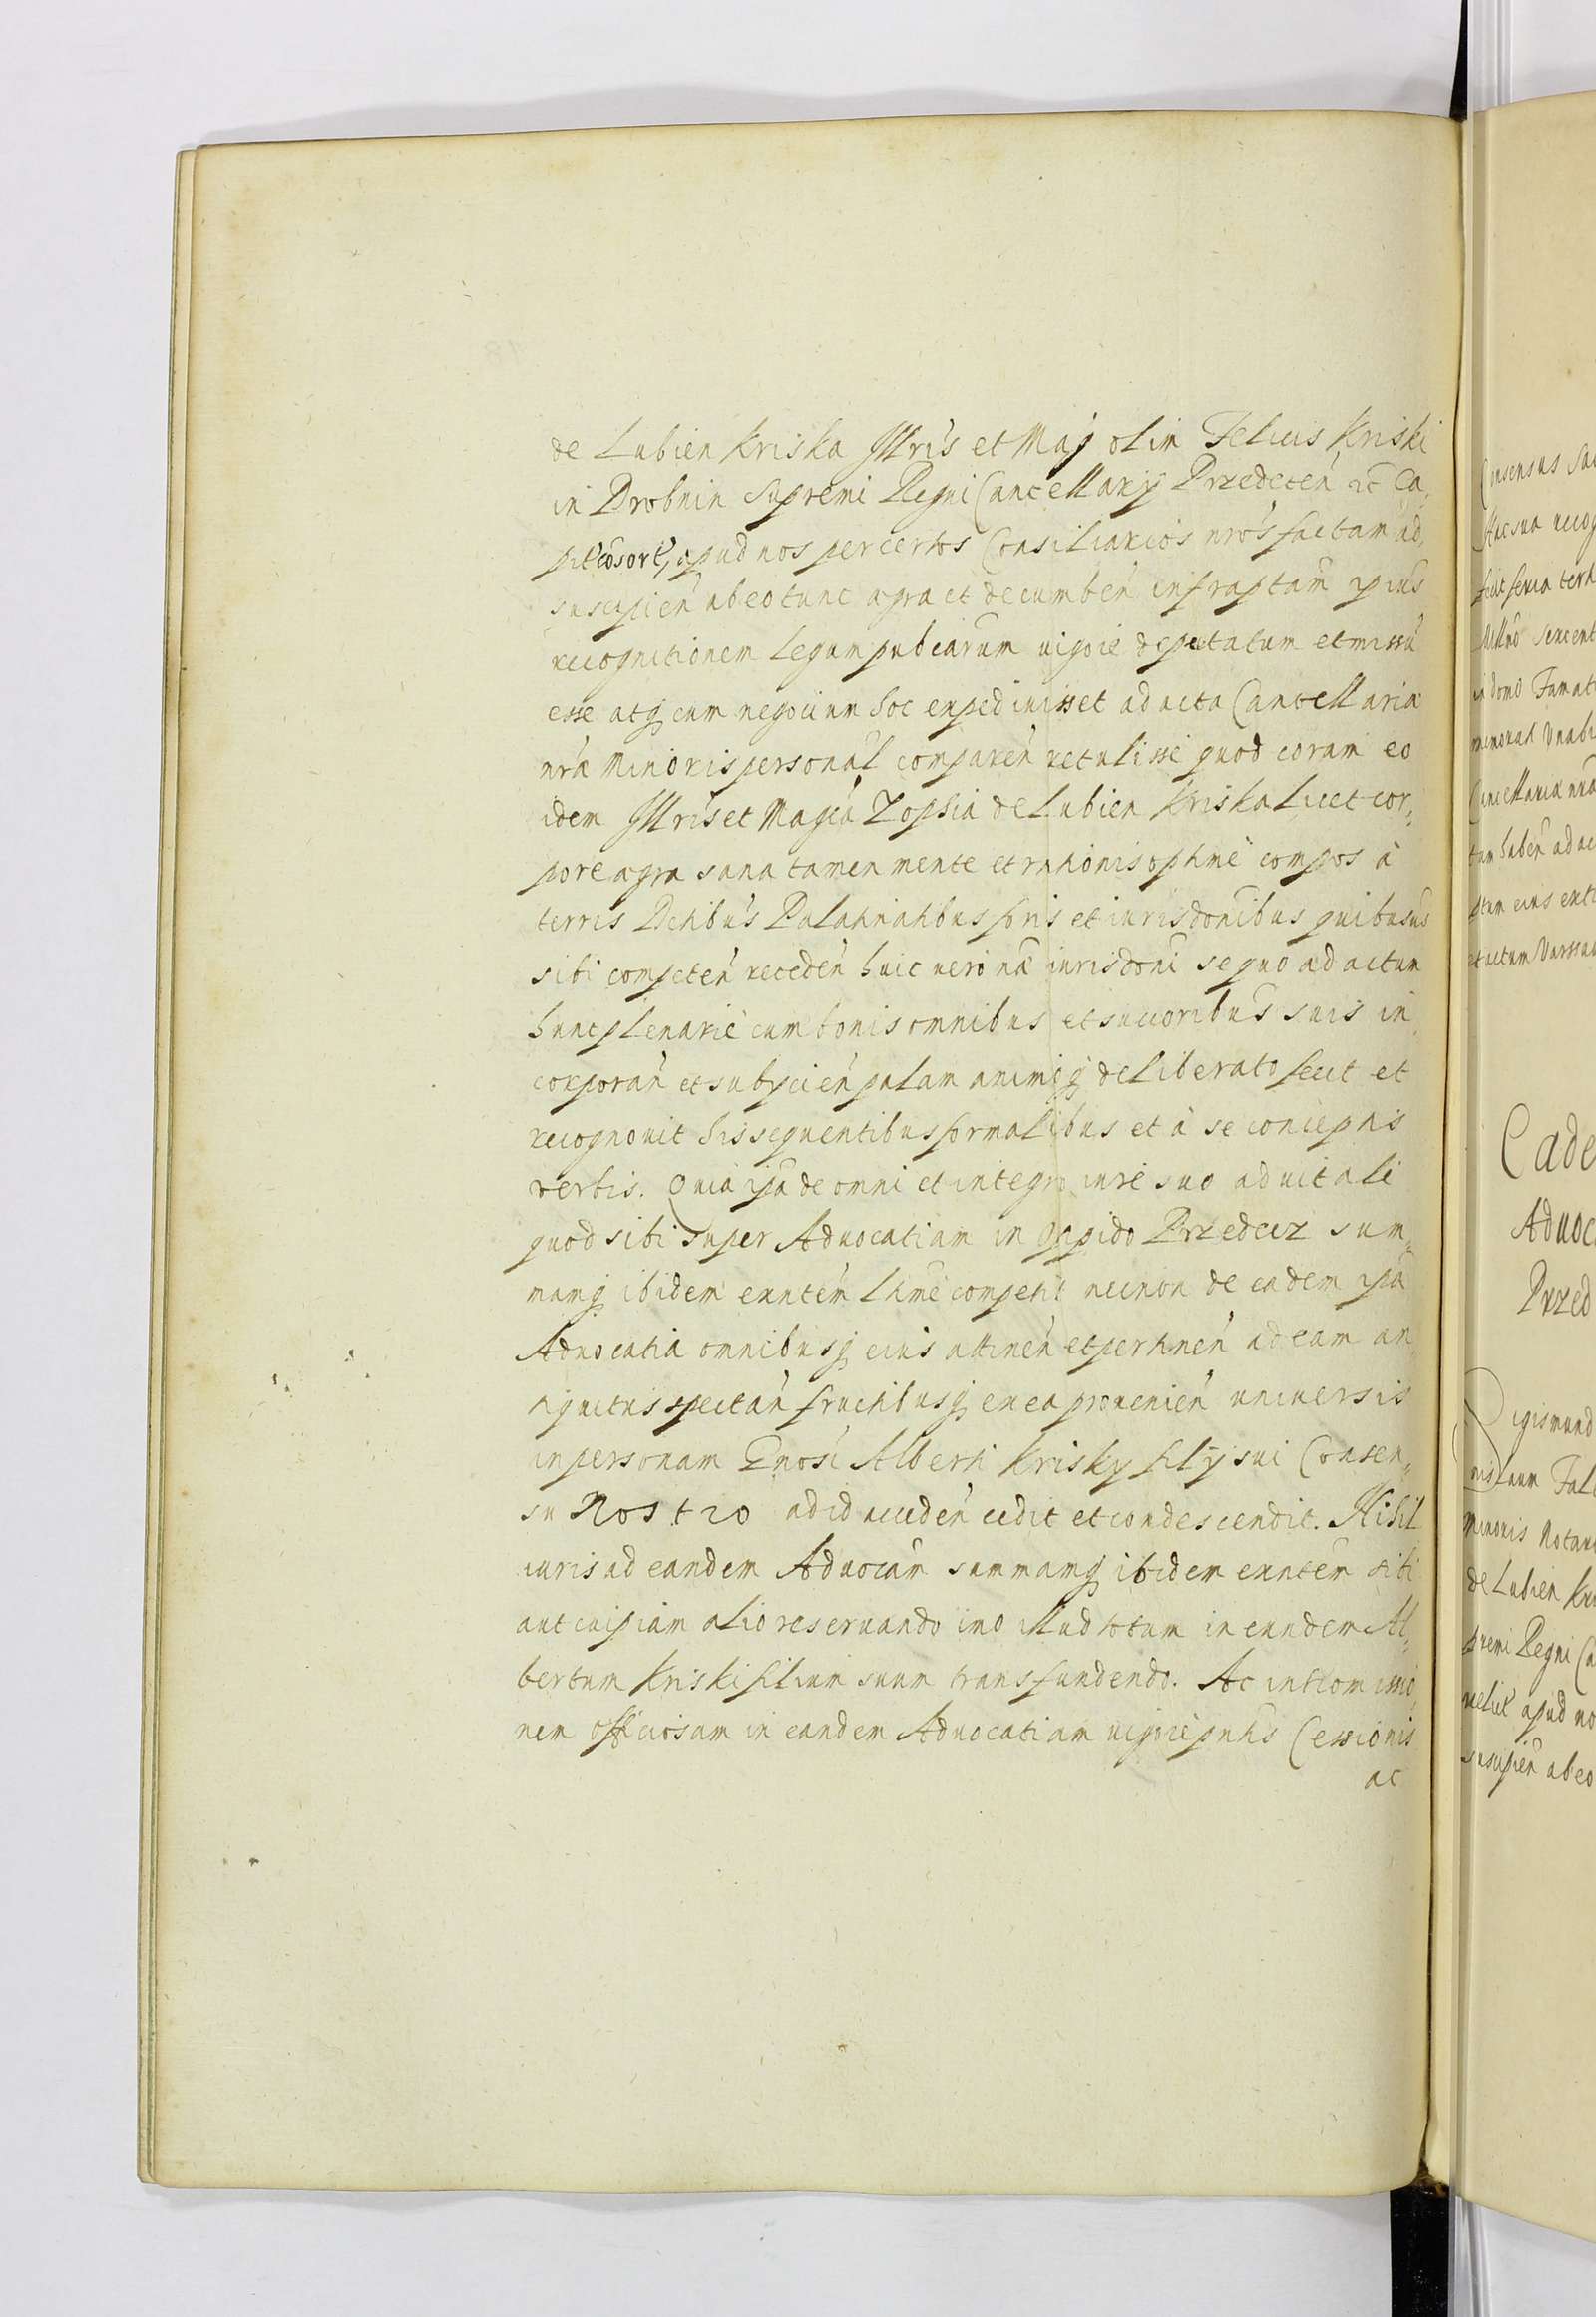 de Lubien Kriska Jllris et Mag olim Felicis Kriski
in Drobnin Supremi Regni Cancellarij Przedecen etc Ca,
pit cosort, apud nos per certos Consiliarios nros factam ad,
suscipien ab eo tunc agra et decumben infraptam ipius
recognitionem legum publarum uigore deputatum et missu
esse atq cum negocium hoc expediuisset ad acta Cancellaria
nra Minoris personal comparen retulisse quod coram eo
idem Jllris et Magca Zophia de Lubien Kriska licet cor,,
pore agra sana tamen mente et rationis optime compos à
terris Dctibus Palatinatibus foris et iurisdonibus quibusuis
sibi competen receden huic uero nrae iurisdoni se quo ad actum
hunc plenarie cum bonis omnibus et succoribus suis in
corporan et subijcien palam animoq deliberato fecit et
recognouit his sequentibus formalibus et à se conceptis
verbis. Quia ipa de omni et integro iure suo aduitali
quod sibi super Aduocatiam in oppido Przedecz sum,,
mamq ibidem exntem lttime competit necnon de eadem ipa
Aduocatia omnibusq eius attinen et pertinen ad eam an
tiquitus spectan fructibusq ex ea prouenien uniuersis
in personam Gnosi Alberti Krisky filij sui Consen,,
su Nostro ad id acceden cedit et condescendit. Nihil
iuris ad eandem Aduocam summamq ibidem exntem sibi
aut cuipiam alio reseruando imo illud totum in eundem Al,,
bertum Kriski filium suum transfundendo. Ac intromissio,
nem officiosam in eandem Aduocatiam uigore pntis Cessionis
ac
Consensus
Cade
Aduoc
Przed
igismund
Minoris Nota
de Lubien Kri
premi Regni Ca
apud no
suscipien ab eo